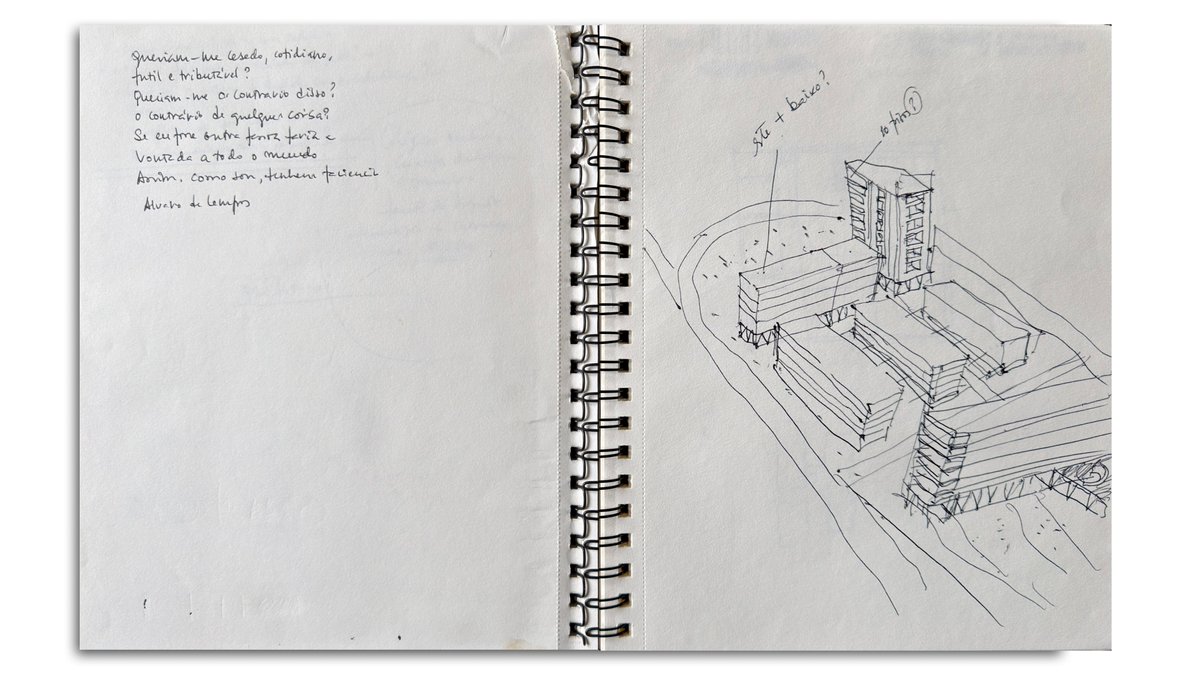 Queriam-me casado, cotidiano,
futil e tributável?
Queriam-me o contrario disso?
o contrário de qualquer coisa?
Se eu fosse outra pessoa faria a
Vontade a todo o mundo
Assim, como sou, tenham paciencia
Alvaro de Campos
este + baixo?
10 pisos?